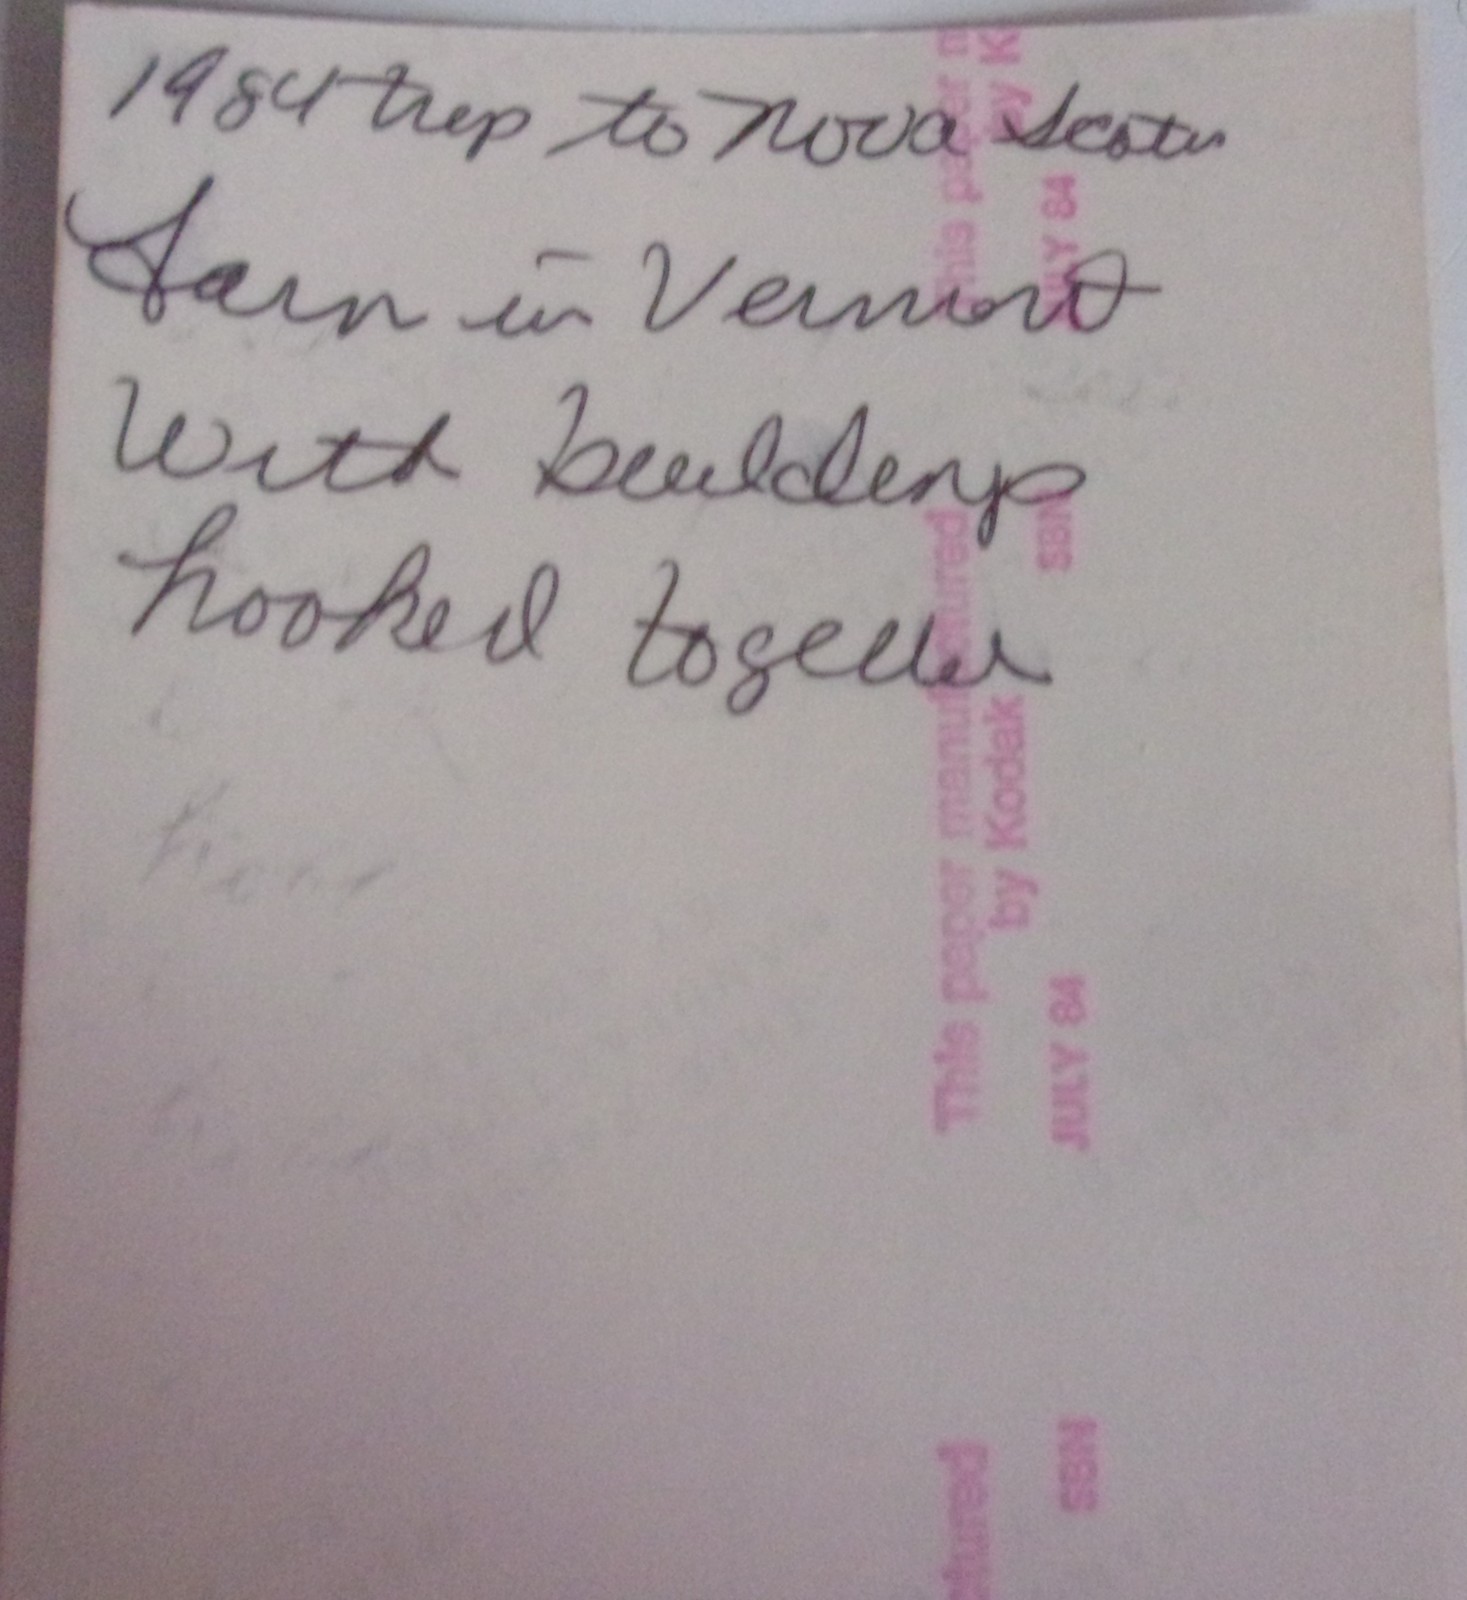 1984 trip to Nova Scotia
Farm in Vermont
With buildings
hooked together
This paper manufactured
by Kodak
JULY 84
SBN
This paper m
by K
JULY 84
SBN
ctured